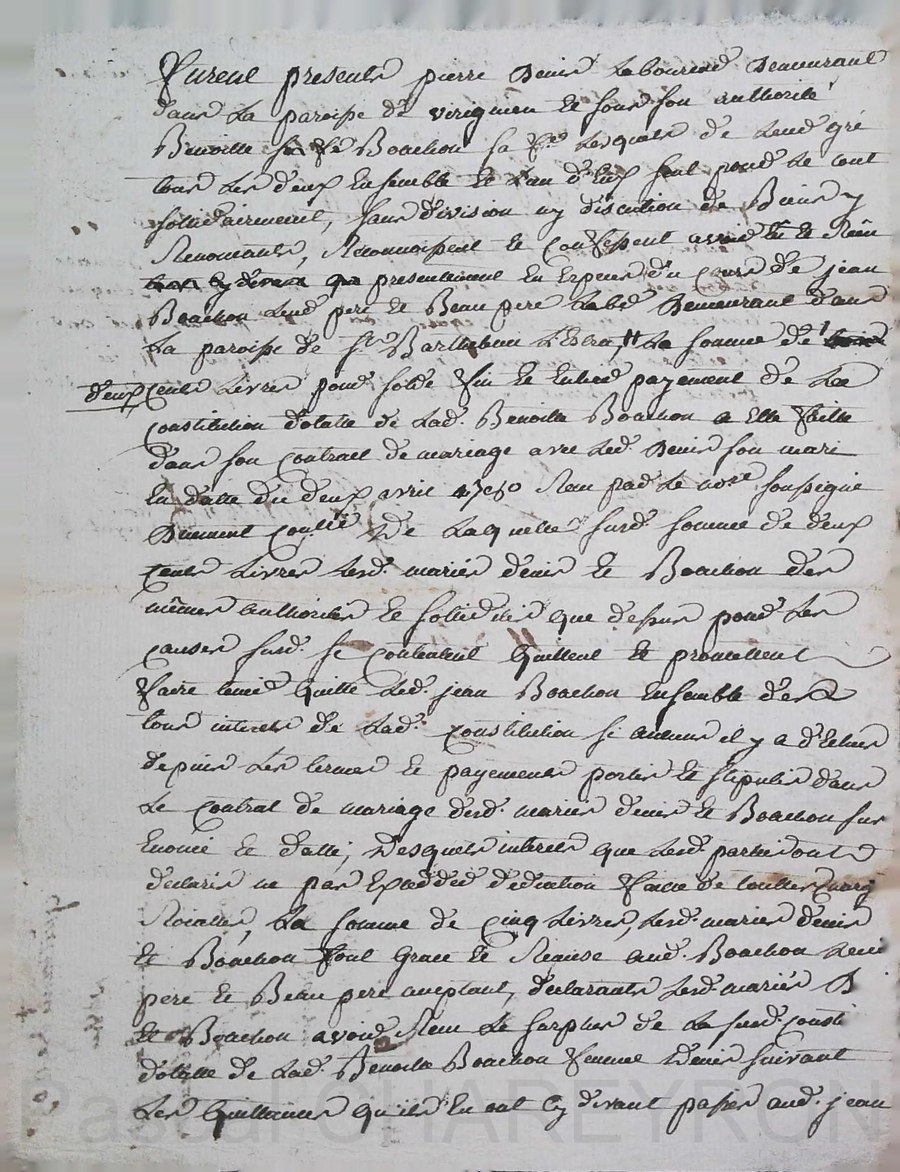 furent presents pierre Denis Laboureur Demeurant
dans La paroipe de virignieu et sous son authorité
Benoitte Bouchon sa fe Lesquels de Leur gré
tous Les deux Ensemble et L'un d'Eux seul pour Le tout
sollidairement, sans division ny discution de Biens y
Renonceants, Reconnoipent et confepent avoir Eu et Receu
presentement En Especes du cours de jean
Bouchon Leur pere et Beau pere Labr Demeurant dans
La paroipe de st Barthelemy La somme de
deux cents Livres pour solde fin et Entier payement de La
constitution dotalle de Lad. Benoitte Bouchon a Elle faitte
dans son contract de mariage avec Led. Denis son mari
En datte du deux avril Receu par Le nore soupigné
Duement coullé De Laquelle susd. somme de deux
cents Livres Lesd. mariés denis et Bouchon des
mêmes authorités et sollidités que depus pour Les
causes susd. se contentent quittent et promettent
faire tenir quitte Led. jean Bouchon Ensemble de
tous interets de Lad. constitution si aucuns il y a d'Echus
depuis Les termes et payements portés Et stipulés dans
Le contrat de mariage desd. mariés denis et Bouchon sus
Enoncé et datté, Desquels interets que Lesd. parties ont
declarés ne pas Exceder deduction faitte de touttes charges
Roialles, La somme de cinq Livres, Lesd. mariés denis
et Bouchon font Grace et Remise aud. Bouchon Leur
pere et Beau pere aceptant, declarants Lesd. mariés D
et Bouchon avoir Receu Le surplus de La susd. consti
dotalle de Lad. Benoitte Bouchon femme Denis suivant
Les quittances qu'ils En ont cy devant papés aud. jean
Pascal CHAREYRON